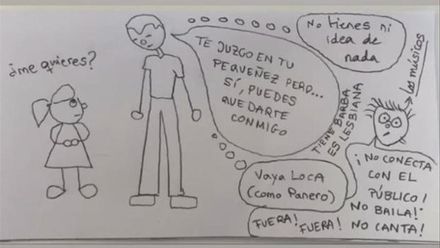 ¿me quieres?
TE JUZGO EN TU
PEQUEÑEZ PERO...
SÍ, PUEDES
QUEDARTE
CONMIGO
No tienes ni
idea de
nada
Los músicos
TIENE BARBA
ES LESBIANA
Vaya LOCA
(como Panero)
FUERA! FUERA!
¡NO CONECTA
CON EL
PÚBLICO!
NO BAILA!
NO CANTA!